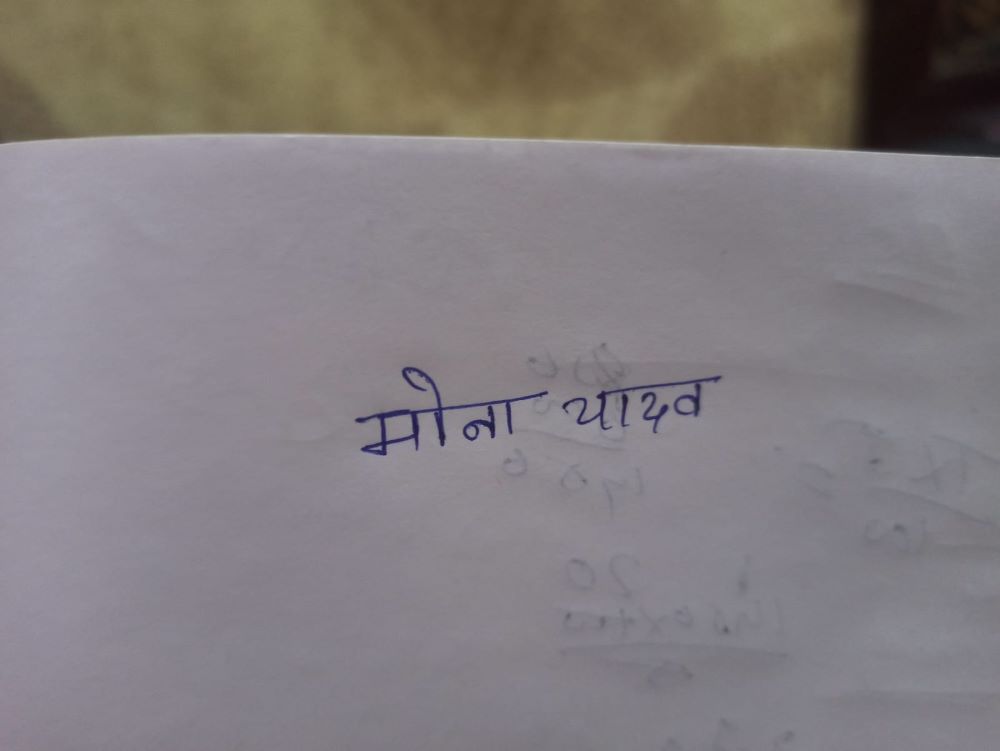 मोना यादव